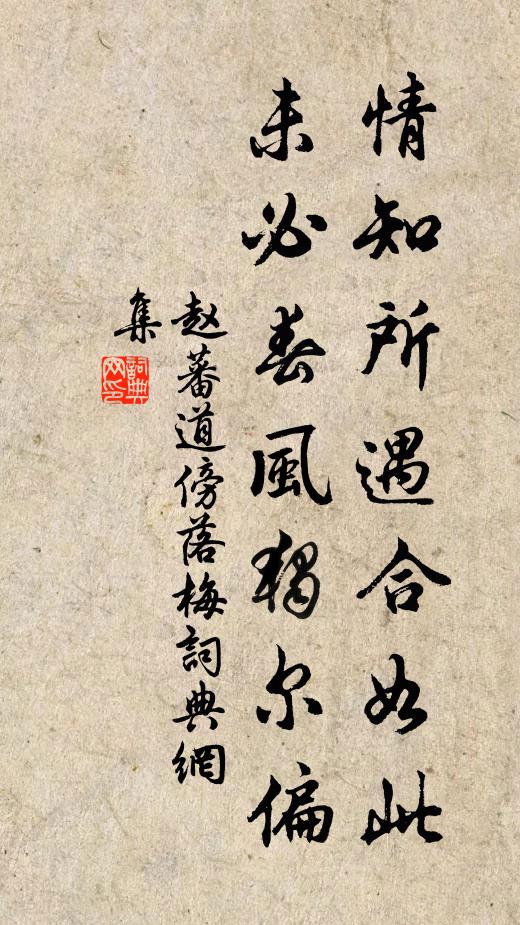 情知所遇合如此
未必春風獨尔偏
赵蕃道傍落梅詞典網
集
詞典網印